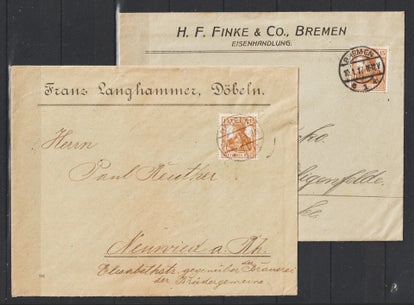 H. F. FINKE & CO., BREMEN
EISENHANDLUNG.
BREMEN
Franz Langhammer, Döbeln.
Herrn
Paul Reuther
Neuwied a. Rh.
Elisabethstr. gegenüber der Brauerei
der Brüdergemeine